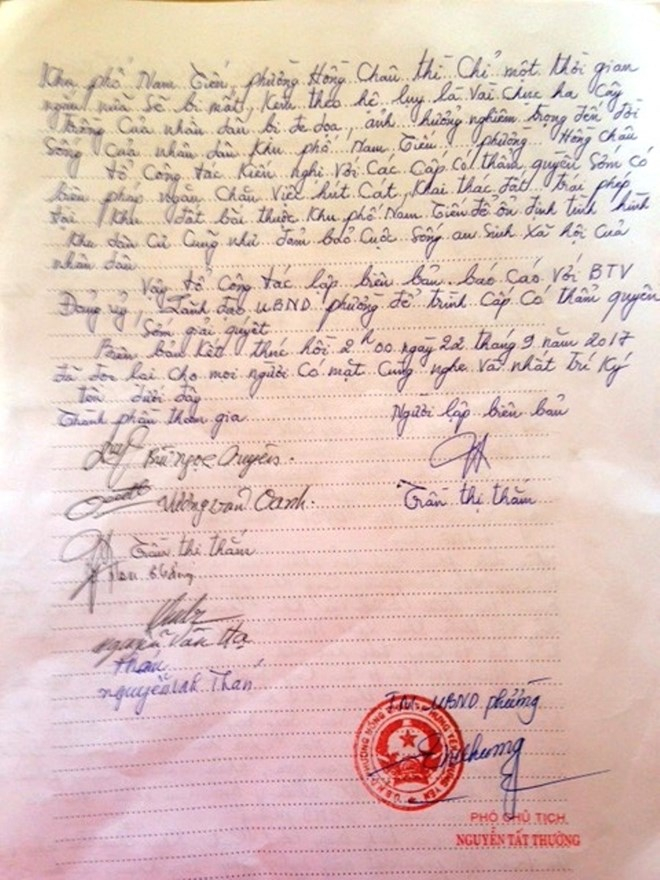 Khu phố Nam Tiến, phường Hồng Châu thì chỉ một thời gian
ngắn nữa sẽ bị mất, kèm theo hệ lụy là vài chục ha cây
trồng của nhân dân bị đe dọa, ảnh hưởng nghiêm trọng đến đời
sống của nhân dân khu phố Nam Tiến, phường Hồng Châu
Tổ công tác kiến nghị với các cấp có thẩm quyền sớm có
biện pháp ngăn chặn việc hút cát, khai thác đất trái phép
tại khu đất bãi thuộc khu phố Nam Tiến để ổn định tình hình
khu dân cư cũng như đảm bảo cuộc sống an sinh xã hội của
nhân dân
Vậy tổ công tác lập biên bản báo cáo với BTV
Đảng ủy, Lãnh đạo UBND phường để trình cấp có thẩm quyền
sớm giải quyết
Biên bản kết thúc hồi 2h00 ngày 22 tháng 9 năm 2017
đã đọc lại cho mọi người có mặt cùng nghe và nhất trí ký
tên dưới đây
Thành phần tham gia
Người lập biên bản
Bùi Ngọc
Vương Văn Oanh.
Trần Thị Thắm
Trần Thị Thắm
Nguyễn Văn Hạ
Nguyễn
T.M. UBND phường
PHÓ CHỦ TỊCH
NGUYỄN TẤT THƯỞNG